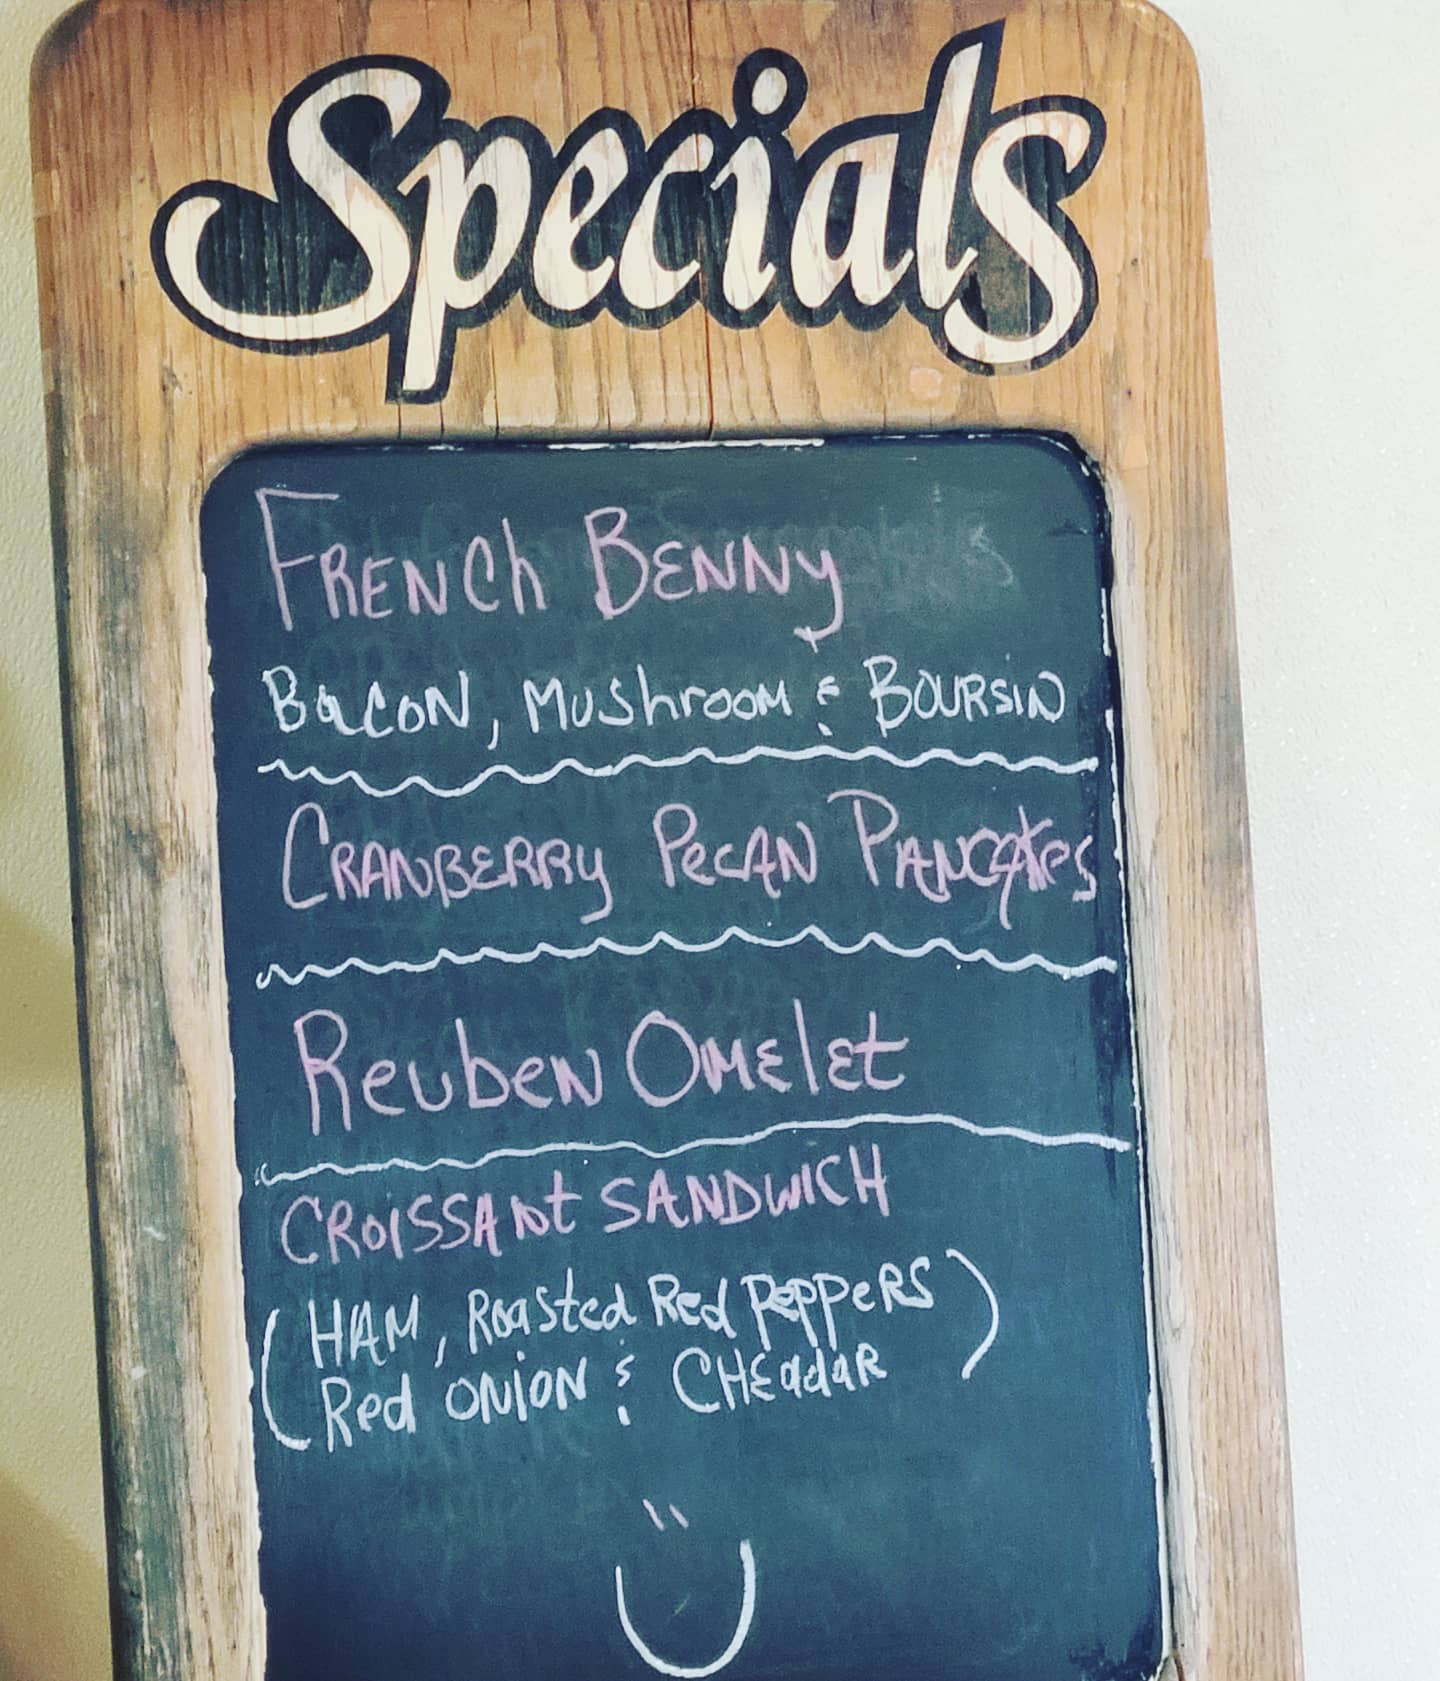 Specials
FRENCh BENNy
BaCON, MUShrOOM & BOURSIN
CRANBERRy PeCAN PANCAKes
ReubeN OMElEt
CROISSANt SANDWICH
(HAM, ROasted Red PeppeRS
Red ONION & CHEddaR)